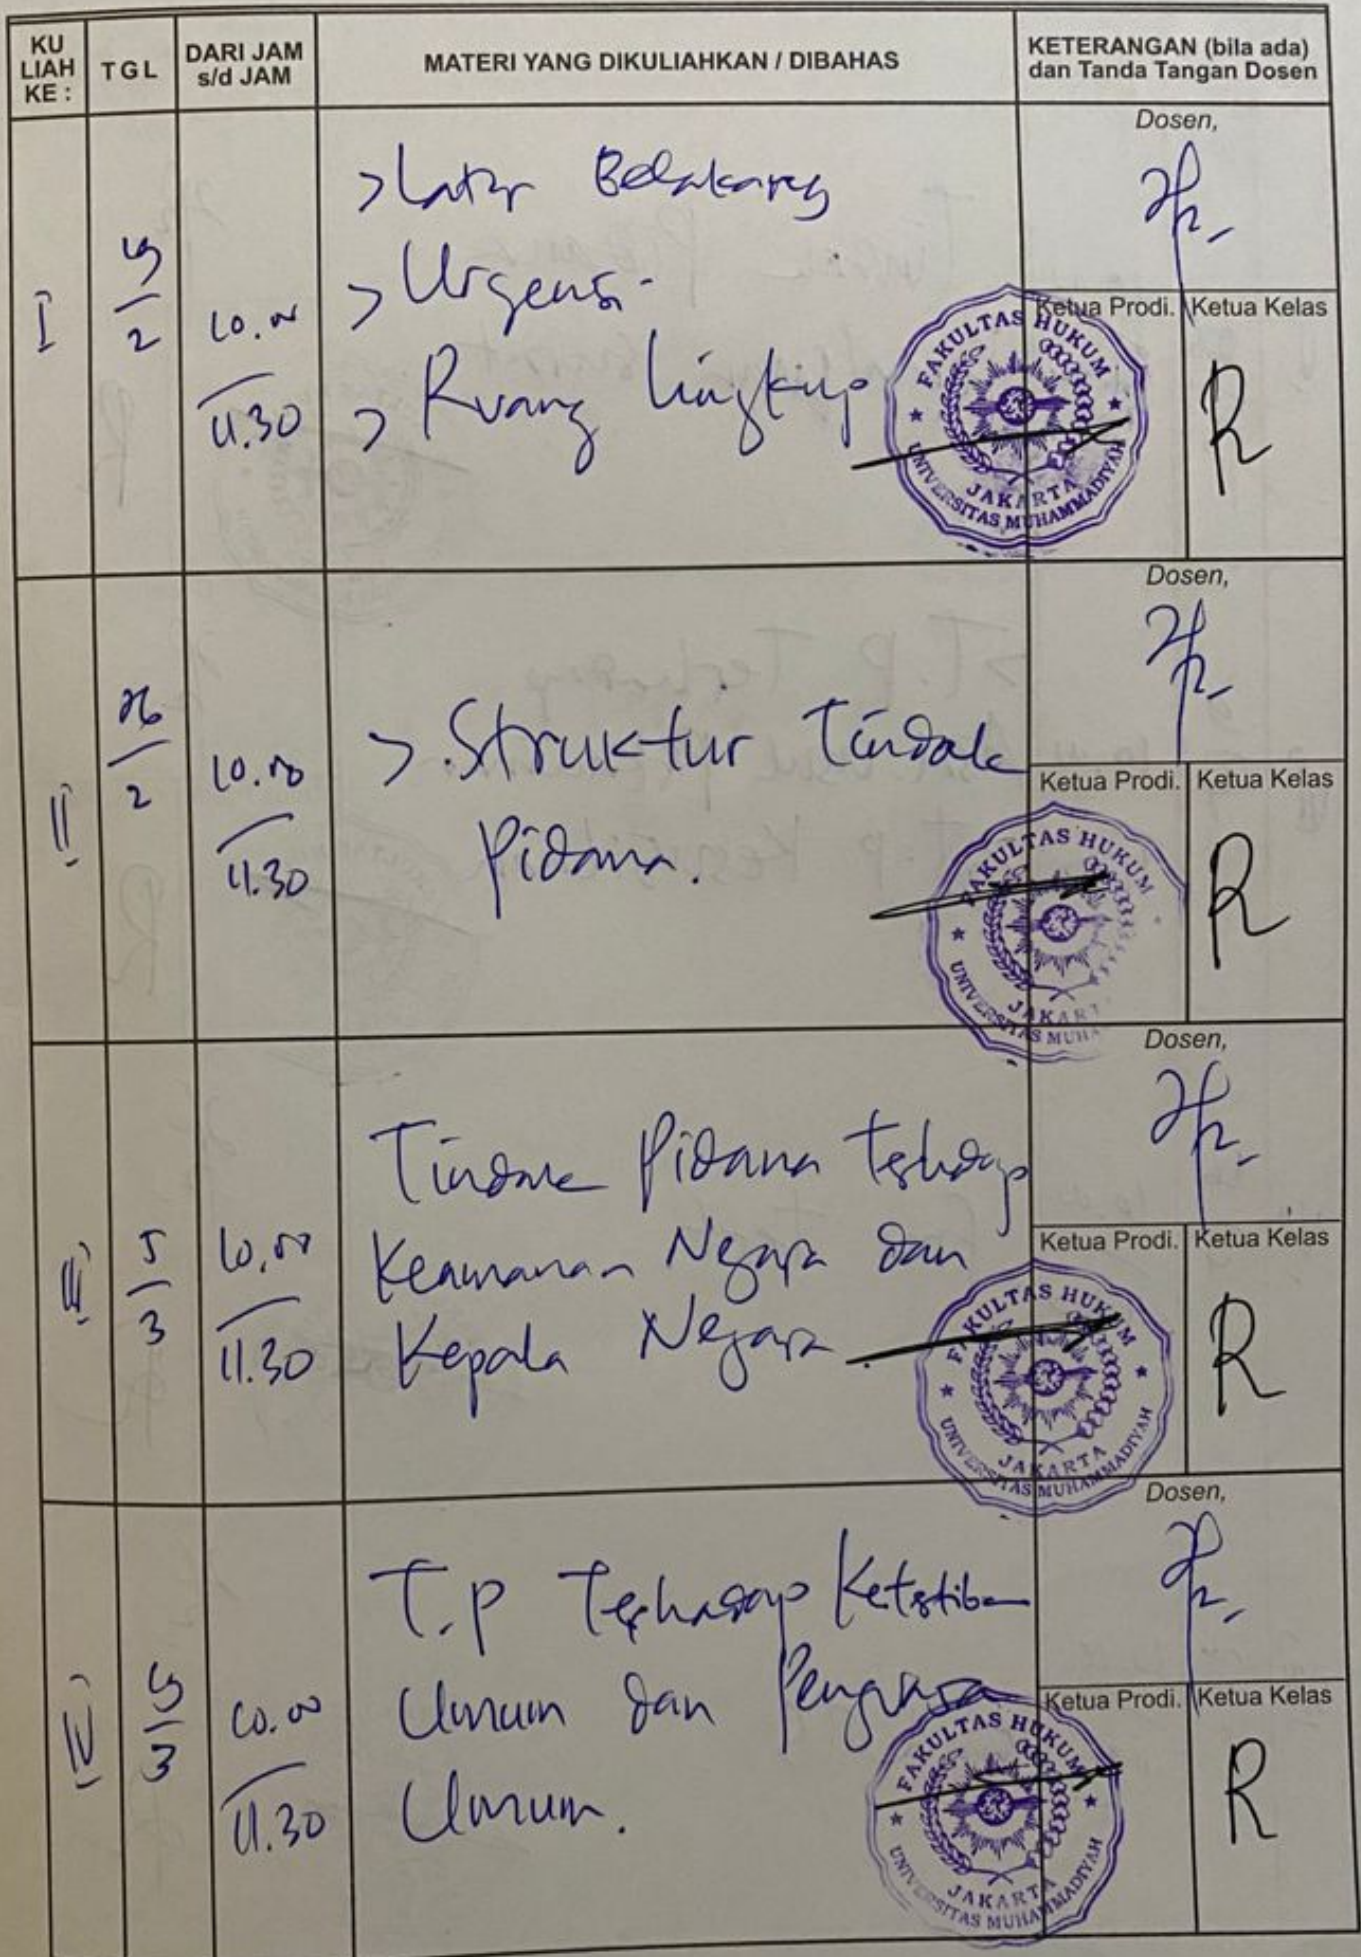 KU LIAH KE :
TGL
DARI JAM s/d JAM
MATERI YANG DIKULIAHKAN / DIBAHAS
KETERANGAN (bila ada) dan Tanda Tangan Dosen
I
2
11.30
> Latar Belakang
> Urgensi
> Ruang Lingkup
Dosen,
Ketua Prodi.
Ketua Kelas
R
FAKULTAS HUKUM
JAKARTA
UNIVERSITAS MUHAMMADIYAH
II
26
2
10.00
11.30
> Struktur Tindak
Pidana.
Dosen,
Ketua Prodi.
Ketua Kelas
R
FAKULTAS HUKUM
JAKART
UNIVERSITAS MUHA
III
5
3
10.00
11.30
Tindak Pidana Terhadap
Keamanan Negara dan
Kepala Negara
Dosen,
Ketua Prodi.
Ketua Kelas
R
FAKULTAS HUKUM
JAKARTA
UNIVERSITAS MUHAMMADIYAH
IV
3
10.00
11.30
T.P Terhadap Ketertiban
Umum dan Penguasa
Umum.
Dosen,
Ketua Prodi.
Ketua Kelas
R
FAKULTAS HUKUM
JAKARTA
UNIVERSITAS MUHAMMADIYAH